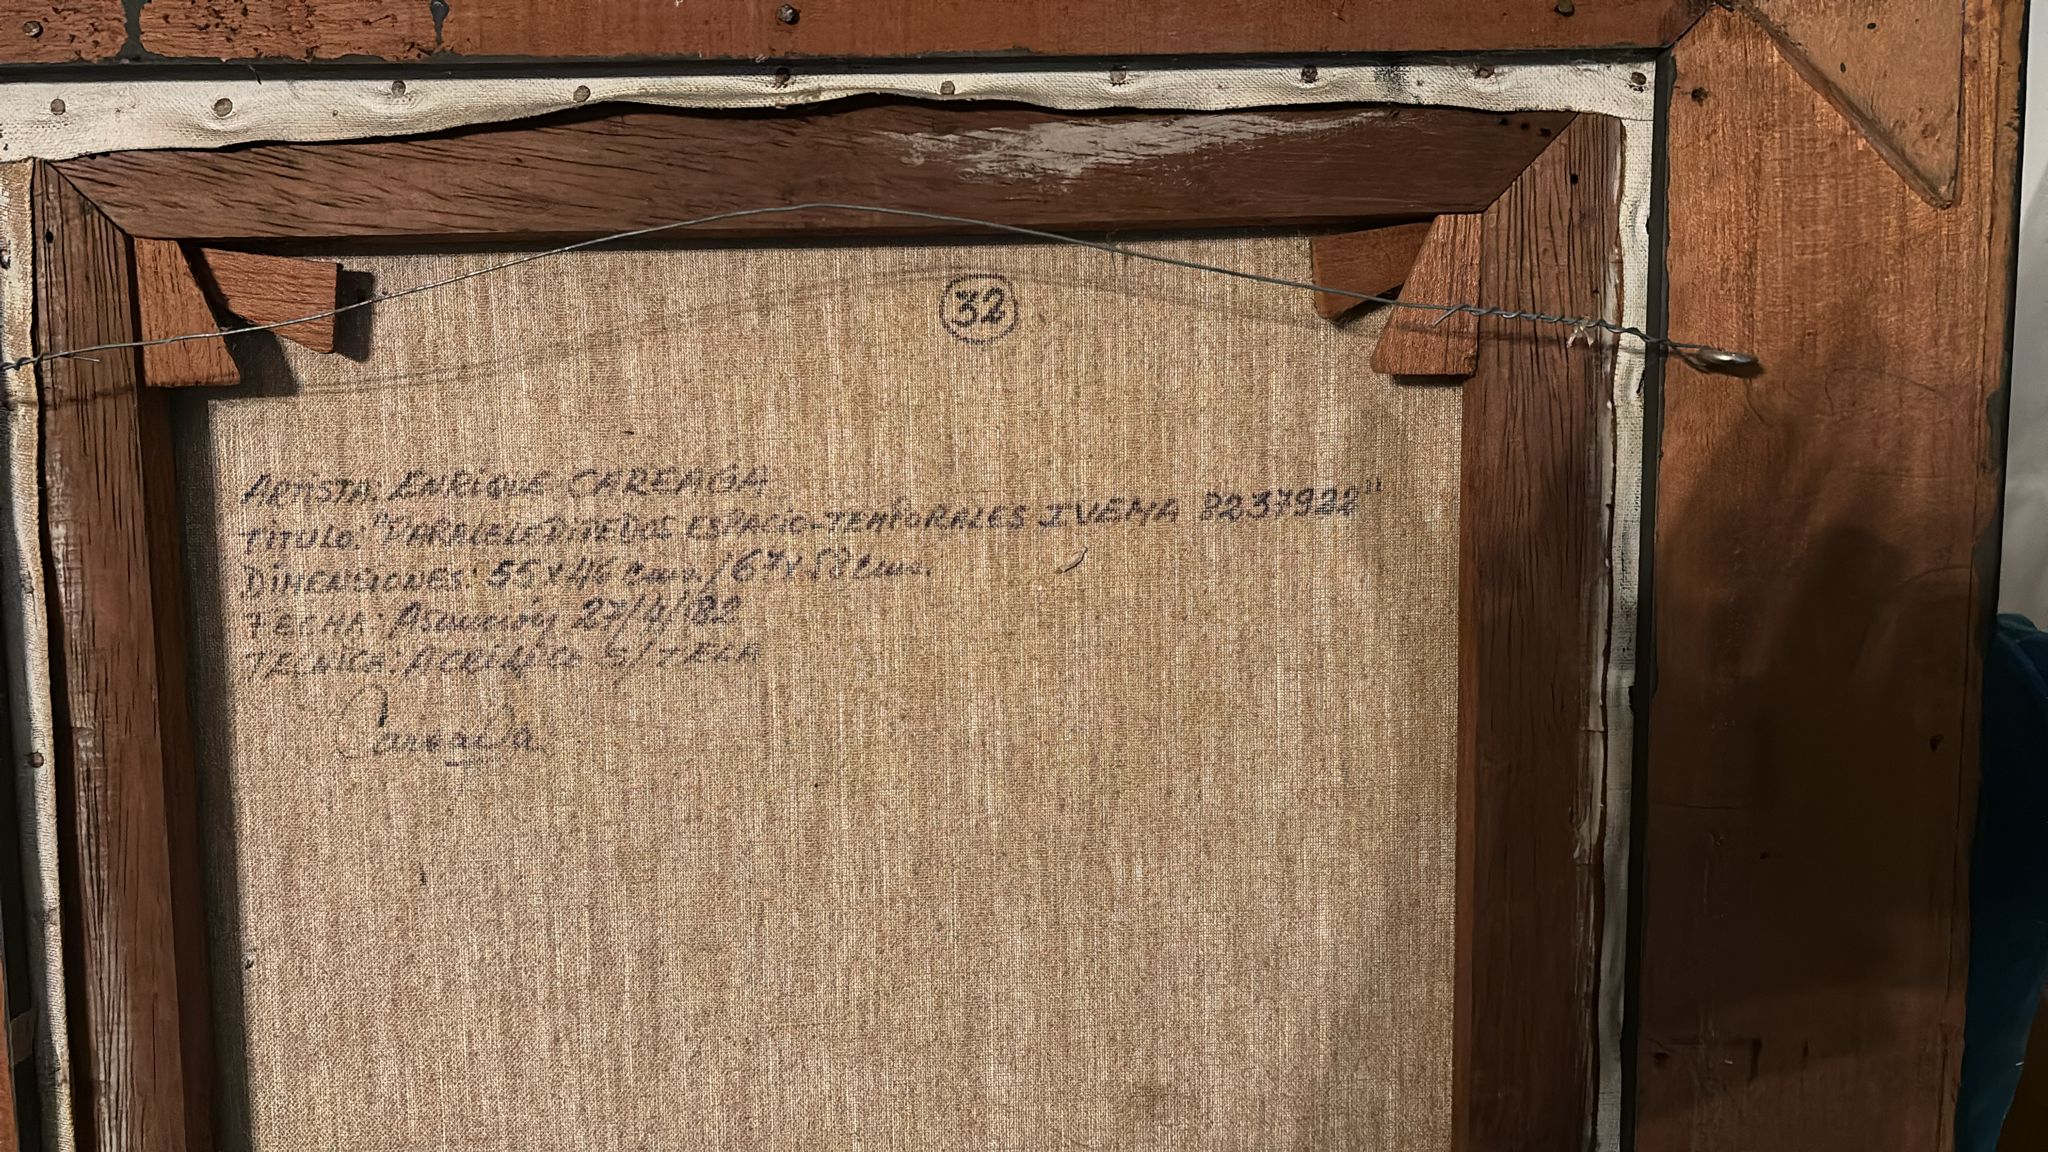 32
ARTISTA: ENRIQUE CAREAGA
TITULO: "PARALELEPIPEDOS ESPACIO-TEMPORALES IVEMA 8237922"
DIMENSIONES: 55X46 cm. / 67X58 cm.
FECHA: Asunción 27/4/82
TECNICA: ACRILICO S/TELA
Careaga